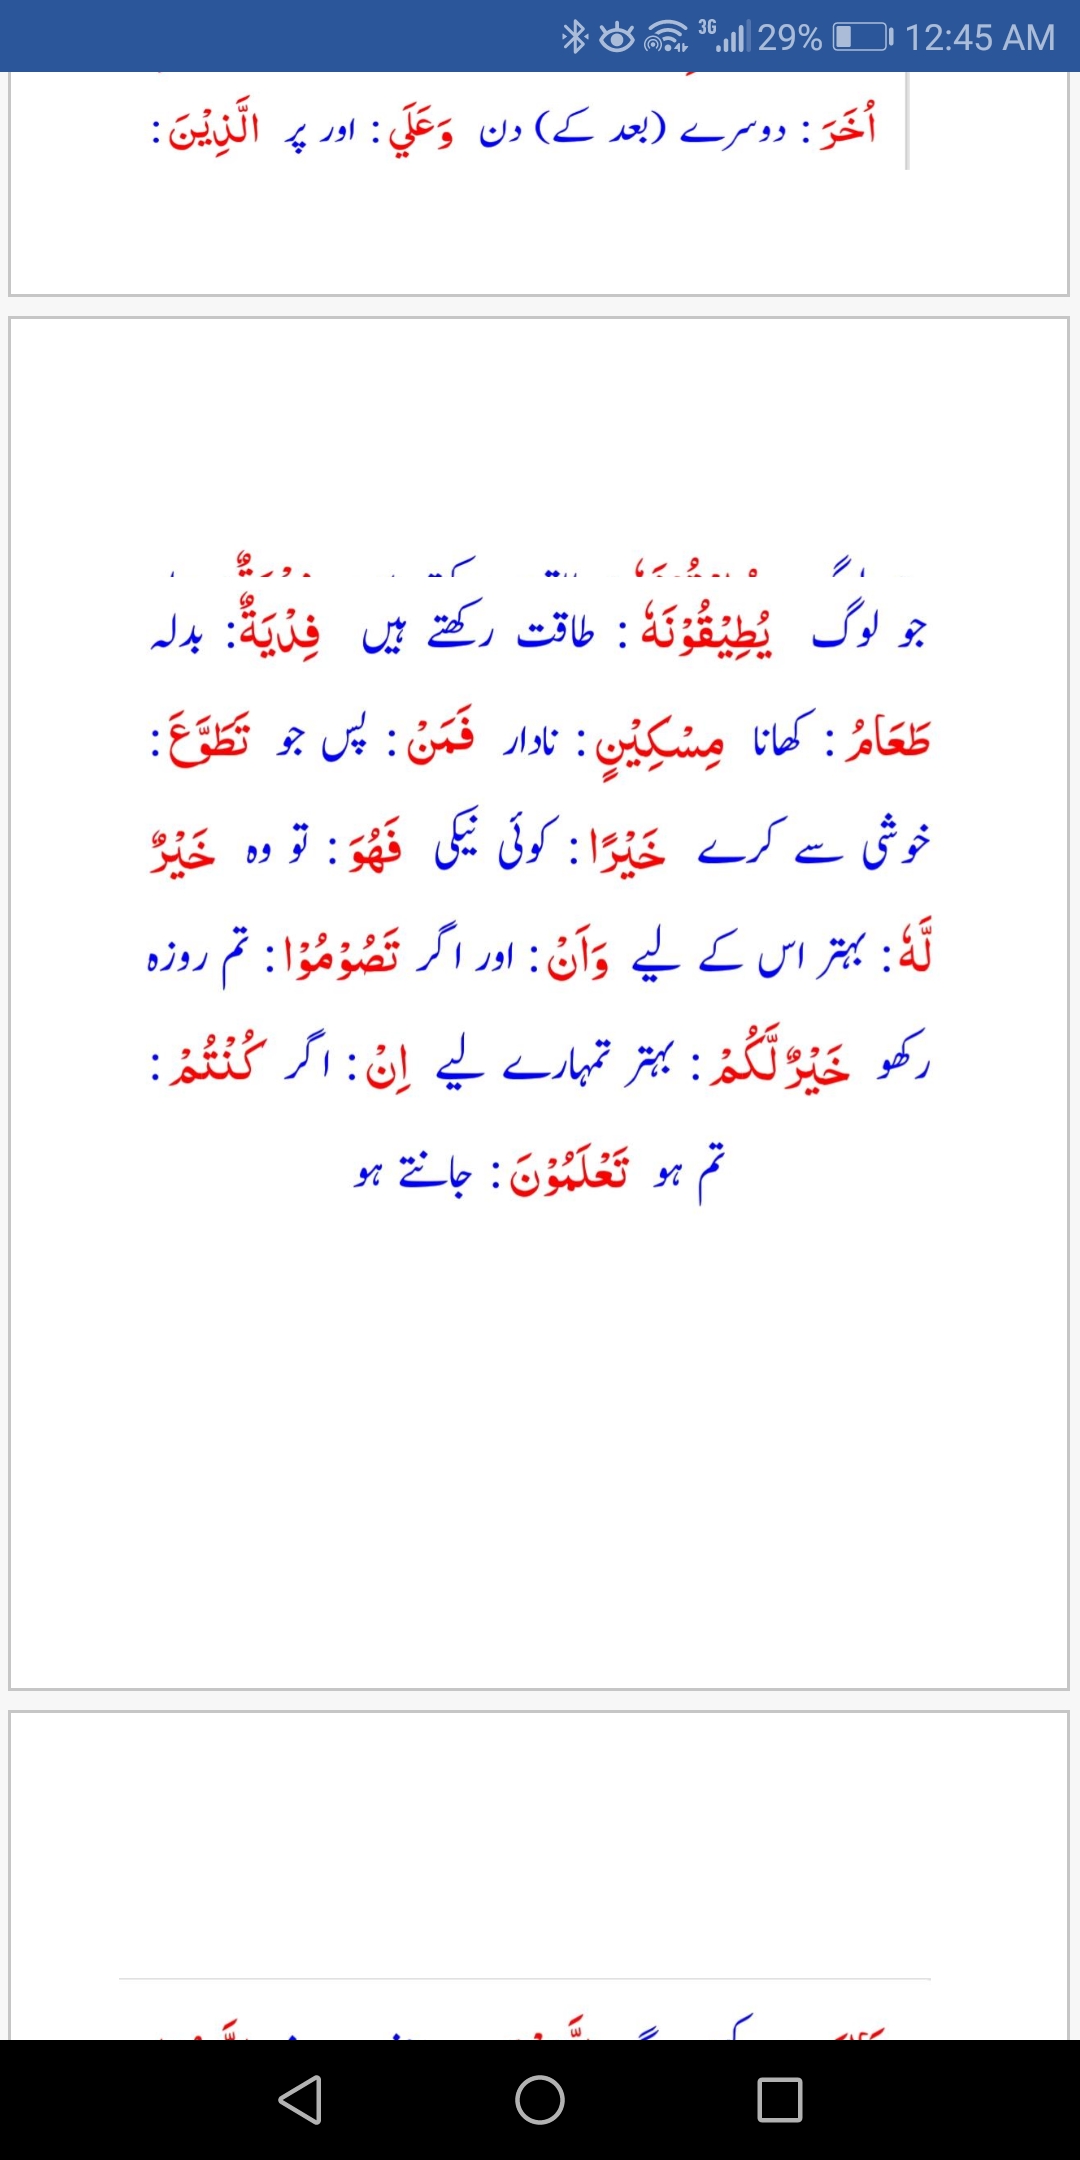 3G 29% 12:45 AM
اُخَرَ : دوسرے (بعد کے) دن وَعَلَي : اور پر الَّذِيْنَ :
جو لوگ يُطِيْقُوْنَهٗ : طاقت رکھتے ہیں فِدْيَةٌ : بدلہ
طَعَامُ : کھانا مِسْكِيْنٍ : نادار فَمَنْ : پس جو تَطَوَّعَ :
خوشی سے کرے خَيْرًا : کوئی نیکی فَهُوَ : تو وہ خَيْرٌ
لَّهٗ : بہتر اس کے لیے وَاَنْ : اور اگر تَصُوْمُوْا : تم روزہ
رکھو خَيْرٌ لَّكُمْ : بہتر تمہارے لیے اِنْ : اگر كُنْتُمْ :
تم ہو تَعْلَمُوْنَ : جانتے ہو